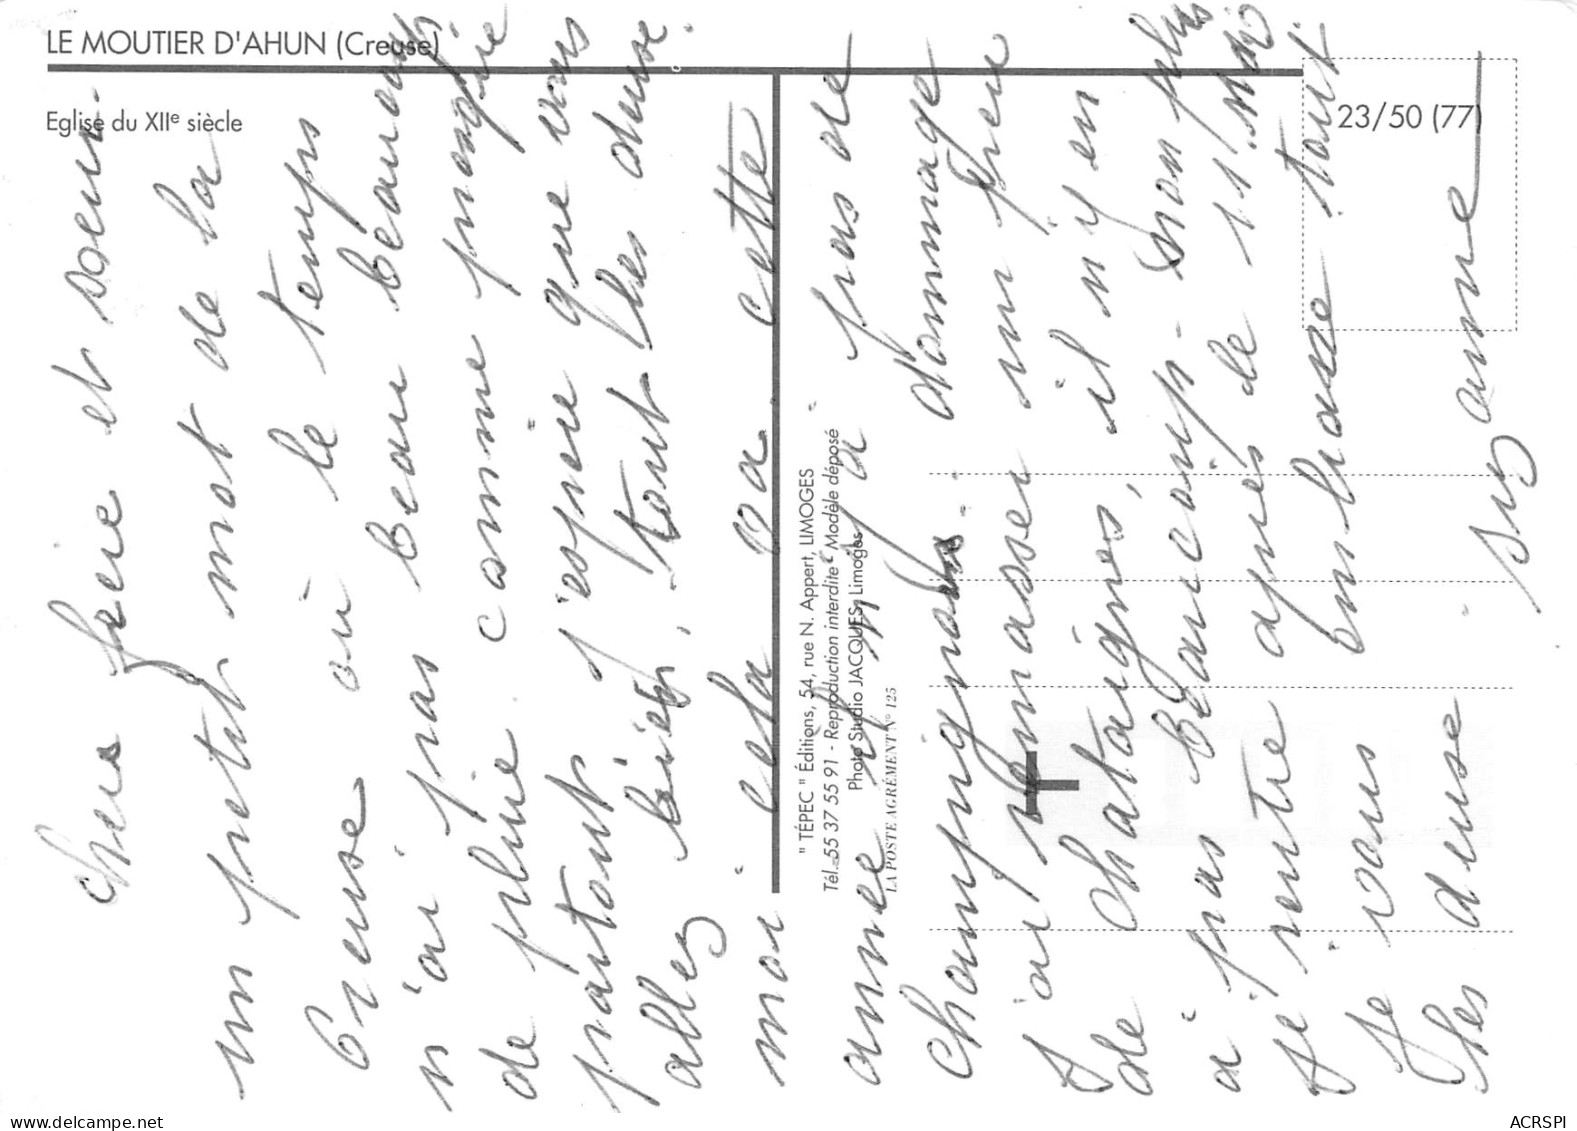 LE MOUTIER D'AHUN (Creuse)
Eglise du XIIe siècle
23/50 (77)
" TÉPEC " Éditions, 54, rue N. Appert, LIMOGES
Tél. 55 37 55 91 - Reproduction interdite - Modèle déposé
Photo Studio JACQUES, Limoges
LA POSTE AGRÉMENT N° 125
Chers frère et soeur.
un petit mot de la
Creuse où le temps
n'ai pas beau beaucoup
de pluie comme presque
partout j'espère que vous
allez bien, tout les deux.
moi cela va cette
année il n'y a pas de
champignons. dommage
J'ai remasser un peu
de chataignes, il n'y en
a pas beaucoup. non plus
Je rentre après le 11
Je vous embrasse tout
les deux. Suzanne
ACRSPI